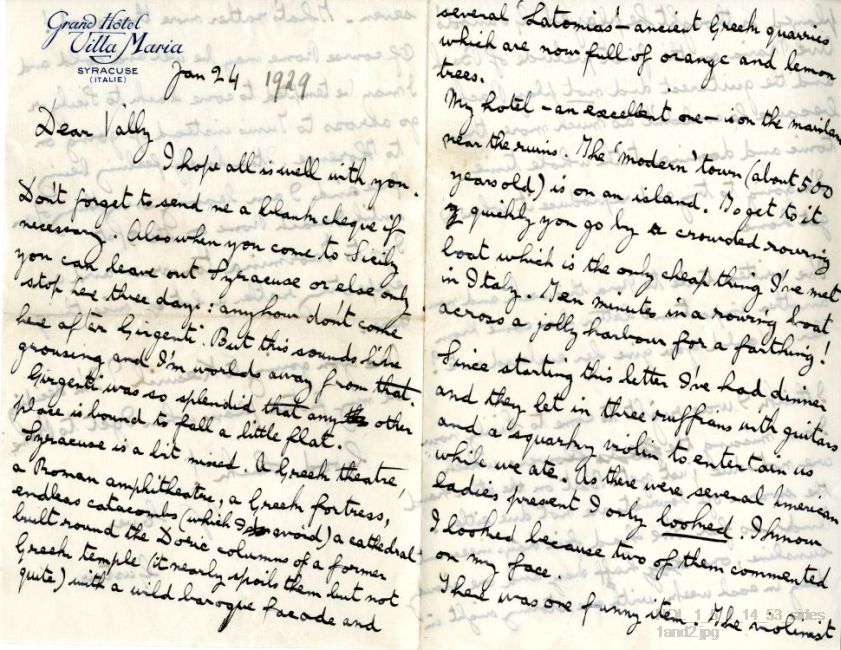 Grand Hôtel
Villa Maria
SYRACUSE
(ITALIE)
Jan 24 1929
Dear Vally
I hope all is well with you.
Don't forget to send me a blank cheque if
necessary. Also when you come to Sicily
you can leave out Syracuse or else only
stop here three days: anyhow don't come
here after Girgenti. But this sounds like
grousing and I'm worlds away from that.
Girgenti was so splendid that any other
place is bound to fall a little flat.
Syracuse is a bit mixed. A Greek theatre,
a Roman amphitheatre, a Greek fortress,
endless catacombs (which I avoid) a cathedral
built round the Doric columns of a former
Greek temple (it nearly spoils them but not
quite) with a wild baroque facade and
several 'Latomias' - ancient Greek quarries
which are now full of orange and lemon
trees.
My hotel - an excellent one - is on the mainlan
near the ruins. The 'modern' town (about 500
years old) is on an island. To get to it
quickly you go by a crowded rowing
boat which is the only cheap thing I've met
in Italy. Ten minutes in a rowing boat
across a jolly harbour for a farthing!
Since starting this letter I've had dinner
and they let in three ruffians with guitars
and a squarky violin to entertain us
while we ate. As there were several American
ladies present I only looked. I know
I looked because two of them commented
on my face.
There was one funny item. The violinist
14_53_sides
1and2.jpg